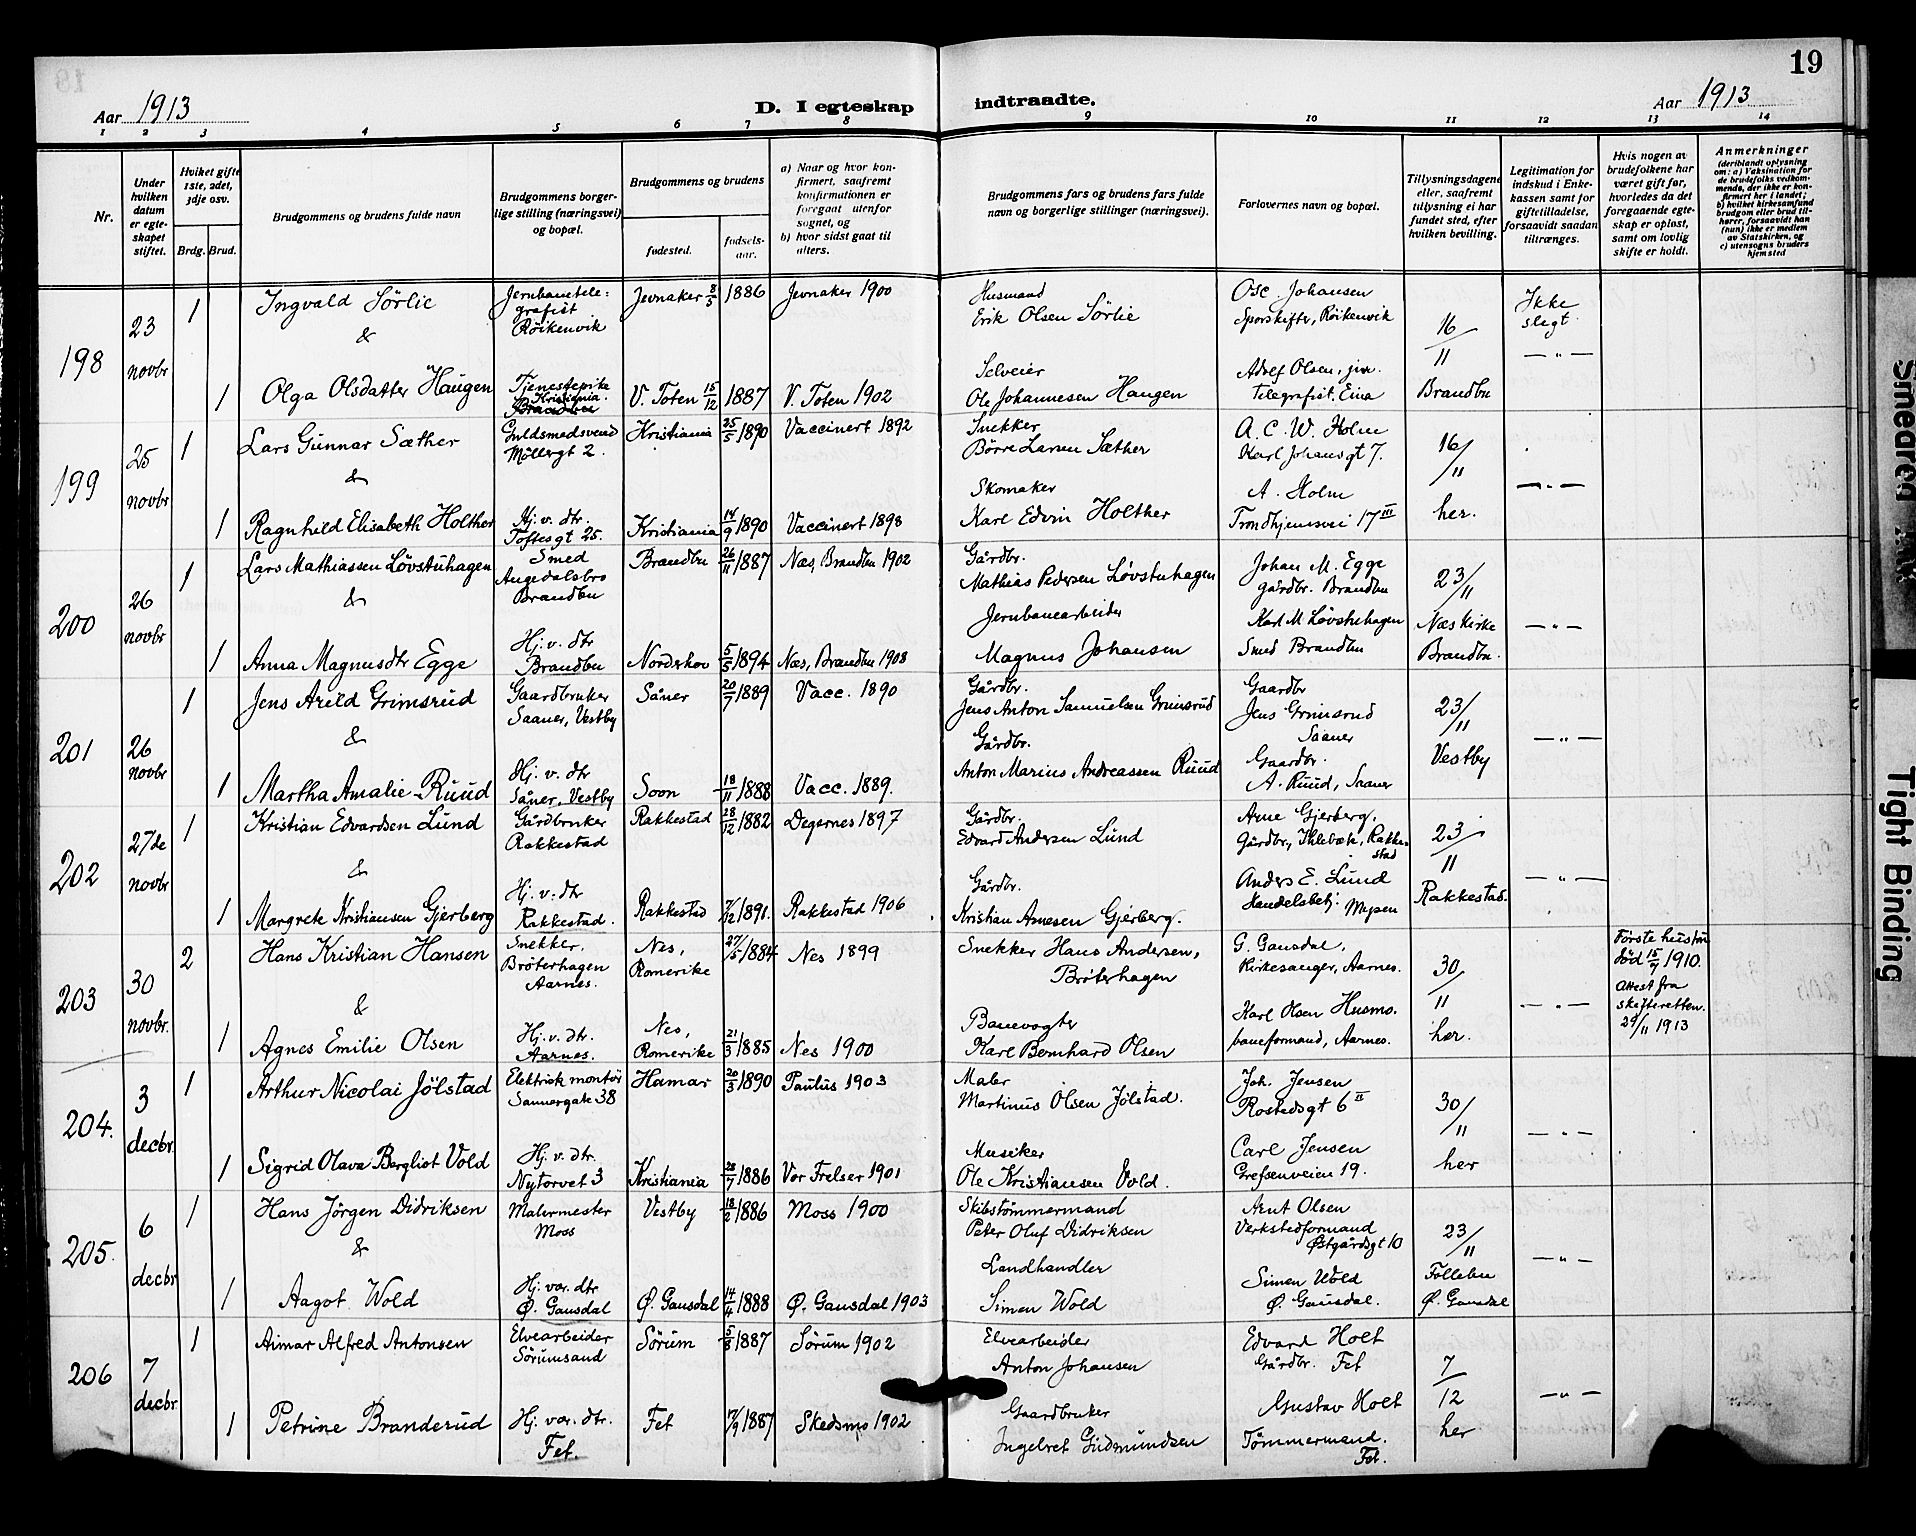 19
Aar 1913
D. I egteskap indtraadte.
Aar 1913
1 2 3 4 5 6 7 8 9 10 11 12 13 14
Nr.
Under hvilken datum er egteskapet stiftet.
Hviket gifte 1ste, 2det, 3dje osv.
Brdg. Brud.
Brudgommens og brudens fulde navn
Brudgommens borgerlige stilling (næringsvei) og bopæl.
Brudgommens og brudens
fødested.
fødselsaar.
a) Naar og hvor konfirmert, saafremt konfirmationen er foregaat utenfor sognet, og
b) hvor sidst gaat til alters.
Brudgommens fars og brudens fars fulde navn og borgerlige stillinger (næringsvei).
Forlovernes navn og bopæl.
Tillysningsdagene eller, saafremt tillysning ei har fundet sted, efter hvilken bevilling.
Legitimation for indskud i Enkekassen samt for giftetilladelse, forsaavidt saadan tiltrænges.
Hvis nogen av brudefolkene har været gift før, hvorledes da det foregaaende egteskap er opløst, samt om lovlig skifte er holdt.
Anmerkninger
(deriblandt oplysning om: a) Vaksination for de brudefolks vedkommende, der ikke er konfirmert her i landet; b) hvilket kirkesamfund brudgom eller brud tilhører, forsaavidt han (hun) ikke er medlem av Statskirken, og c) utensogns bruders hjemsted
198 23 novbr
1 Ingvald Sörlie Jernbanetelegrafist Röikenvik Jevnaker 8/5 1886 Jevnaker 1900 Husmand Erik Olsen Sörlie Osc. Johansen Sporskifter, Röikenvik 16/11 Brandbu Ikke slegt
&
1 Olga Olsdatter Haugen Tjenestepike Kristiania. V. Toten 15/12 1887 V. Toten 1902 Selveier Ole Johannesen Haugen Adolf Olsen, jun. Telegrafist. Eina — " —
199 25 novbr
1 Lars Gunnar Sæther Guldsmedsvend Möllergt 2. Kristiania 25/5 1890 Vaccinert 1892 Snekker Börre Larsen Sæther A. C. W. Holm Karl Johansgt 7. 16/11 her. — " —
&
1 Ragnhild Elisabeth Holther Hj. v. dtr. Toftesgt 25. Kristiania 14/9 1890 Vaccinert 1898 Skomaker Karl Edvin Holther A. Holm Trondhjemsvei 17 III
200 26 novbr
1 Lars Mathiassen Løvstuhagen Smed Augedalsbro Brandbu Brandbu 26/11 1887 Næs, Brandbu 1902 Gårdbr. Mathias Pedersen Løvstuhagen Johan M. Egge gårdbr. Brandbu 23/11 Næs kirke Brandbu. — " —
&
1 Anna Magnusdtr Egge Hj. v. dtr Brandbu Norderhov 5/5 1894 Næs, Brandbu 1908 Jernbanearbeider Magnus Johansen Karl M. Løvstuhagen Smed Brandbu
201 26 novbr
1 Jens Arild Grimsrud Gaardbruker Saaner, Vestby Såner 20/7 1889 Vacc. 1890 Gårdbr. Jens Anton Samuelsen Grimsrud Gaardbr Jens Grimsrud Saaner 23/11 Vestby — " —
&
1 Martha Amalie Ruud Hj. v. dtr Såner, Vestby Soon 18/11 1888 Vacc. 1889. Gårdbr. Anton Marius Andreassen Ruud Gaardbr. A. Ruud, Saaner
202 27de novbr
1 Kristian Edvardsen Lund Gårdbruker Rakkestad Rakkestad 28/12 1882 Degernes 1897 Gårdbr. Edvard Andersen Lund Arne Gjerberg. Gårdbr., Rakkestad 23/11 Rakkestad. — " —
&
1 Margrete Kristiansen Gjerberg Hj. v. dtr Rakkestad. Rakkestad 1891. Rakkestad 1906 Gårdbr. Kristian Arnesen Gjerberg. Anders E. Lund Handelsbetj. Mysen
203 30 novbr.
2 Hans Kristian Hansen Snekker, Bröterhagen Aarnes. Nes, Romerike 27/5 1884 Nes 1899 Snekker Hans Andersen, Bröterhagen G. Gausdal, Kirkesanger, Aarnes. 30/11 her. — " — Første hustru död 15/7 1910. Attest fra skifteretten. 29/11 1913
&
1 Agnes Emilie Olsen Hj. v. dtr. Aarnes. Nes, Romerike 21/3 1885 Nes 1900 Banevogter Karl Bernhard Olsen Karl Olsen Husmo. baneformand, Aarnes.
204. 3 decbr.
1 Arthur Nicolai Jölstad Elektrisk montör Sannergate 38 Hamar 20/3 1890 Paulus 1903 Maler Martinus Olsen Jölstad. Joh. Jensen Rostedsgt 6 II 30/11 her — " —
1 Sigrid Olava Bergliot Vold Hj. v. dtr. Nytorvet 3 Kristiania 28/7 1886 Vor Frelser 1901 Musiker Ole Kristiansen Vold. Carl Jensen Grefsenveien 19.
205. 6 decbr
1 Hans Jörgen Didriksen Malermester Moss Vestby 18/2 1886 Moss 1900 Skibstömmermand Peter Oluf Didriksen Arnt Olsen Verkstedformand Østgårdsgt 10 23/11 Follebu Ø. Gausdal — " —
&
1 Aagot Wold Hj. vær. dtr Ø. Gausdal Ø. Gausdal 14/4 1888 Ø. Gausdal 1903 Landhandler Simen Wold Simen Wold Ø. Gausdal.
206 7 decbr
1 Aimar Alfred Antonsen Elvearbeider Sörumsand Sörum 5/8 1887 Sörum 1902 Elvearbeider Anton Johansen Edvard Holt Gårdbr. Fet 7/12 her — " —
1 Petrine Branderud Hj. vær. dtr. Fet. Fet 17/9 1887 Skedsmo 1902 Gaardbruker Ingebret Gudmundsen Gustav Holt Tömmermand. Fet.
Smeared Ink
Tight Binding